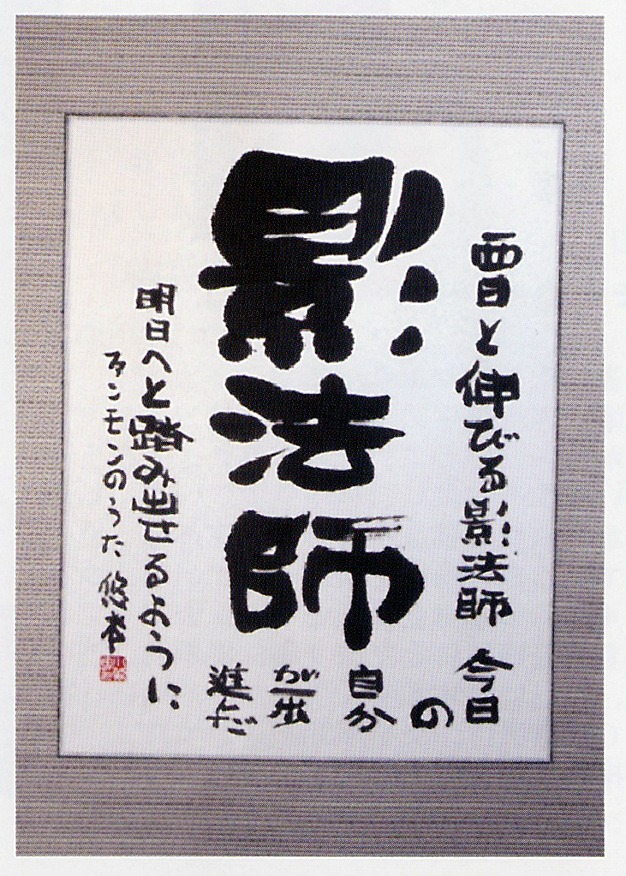 影法師
西日と伸びる影法師 今日
の
自分
が一歩
進んだ
明日へと踏み出せるように
ファンモンのうた